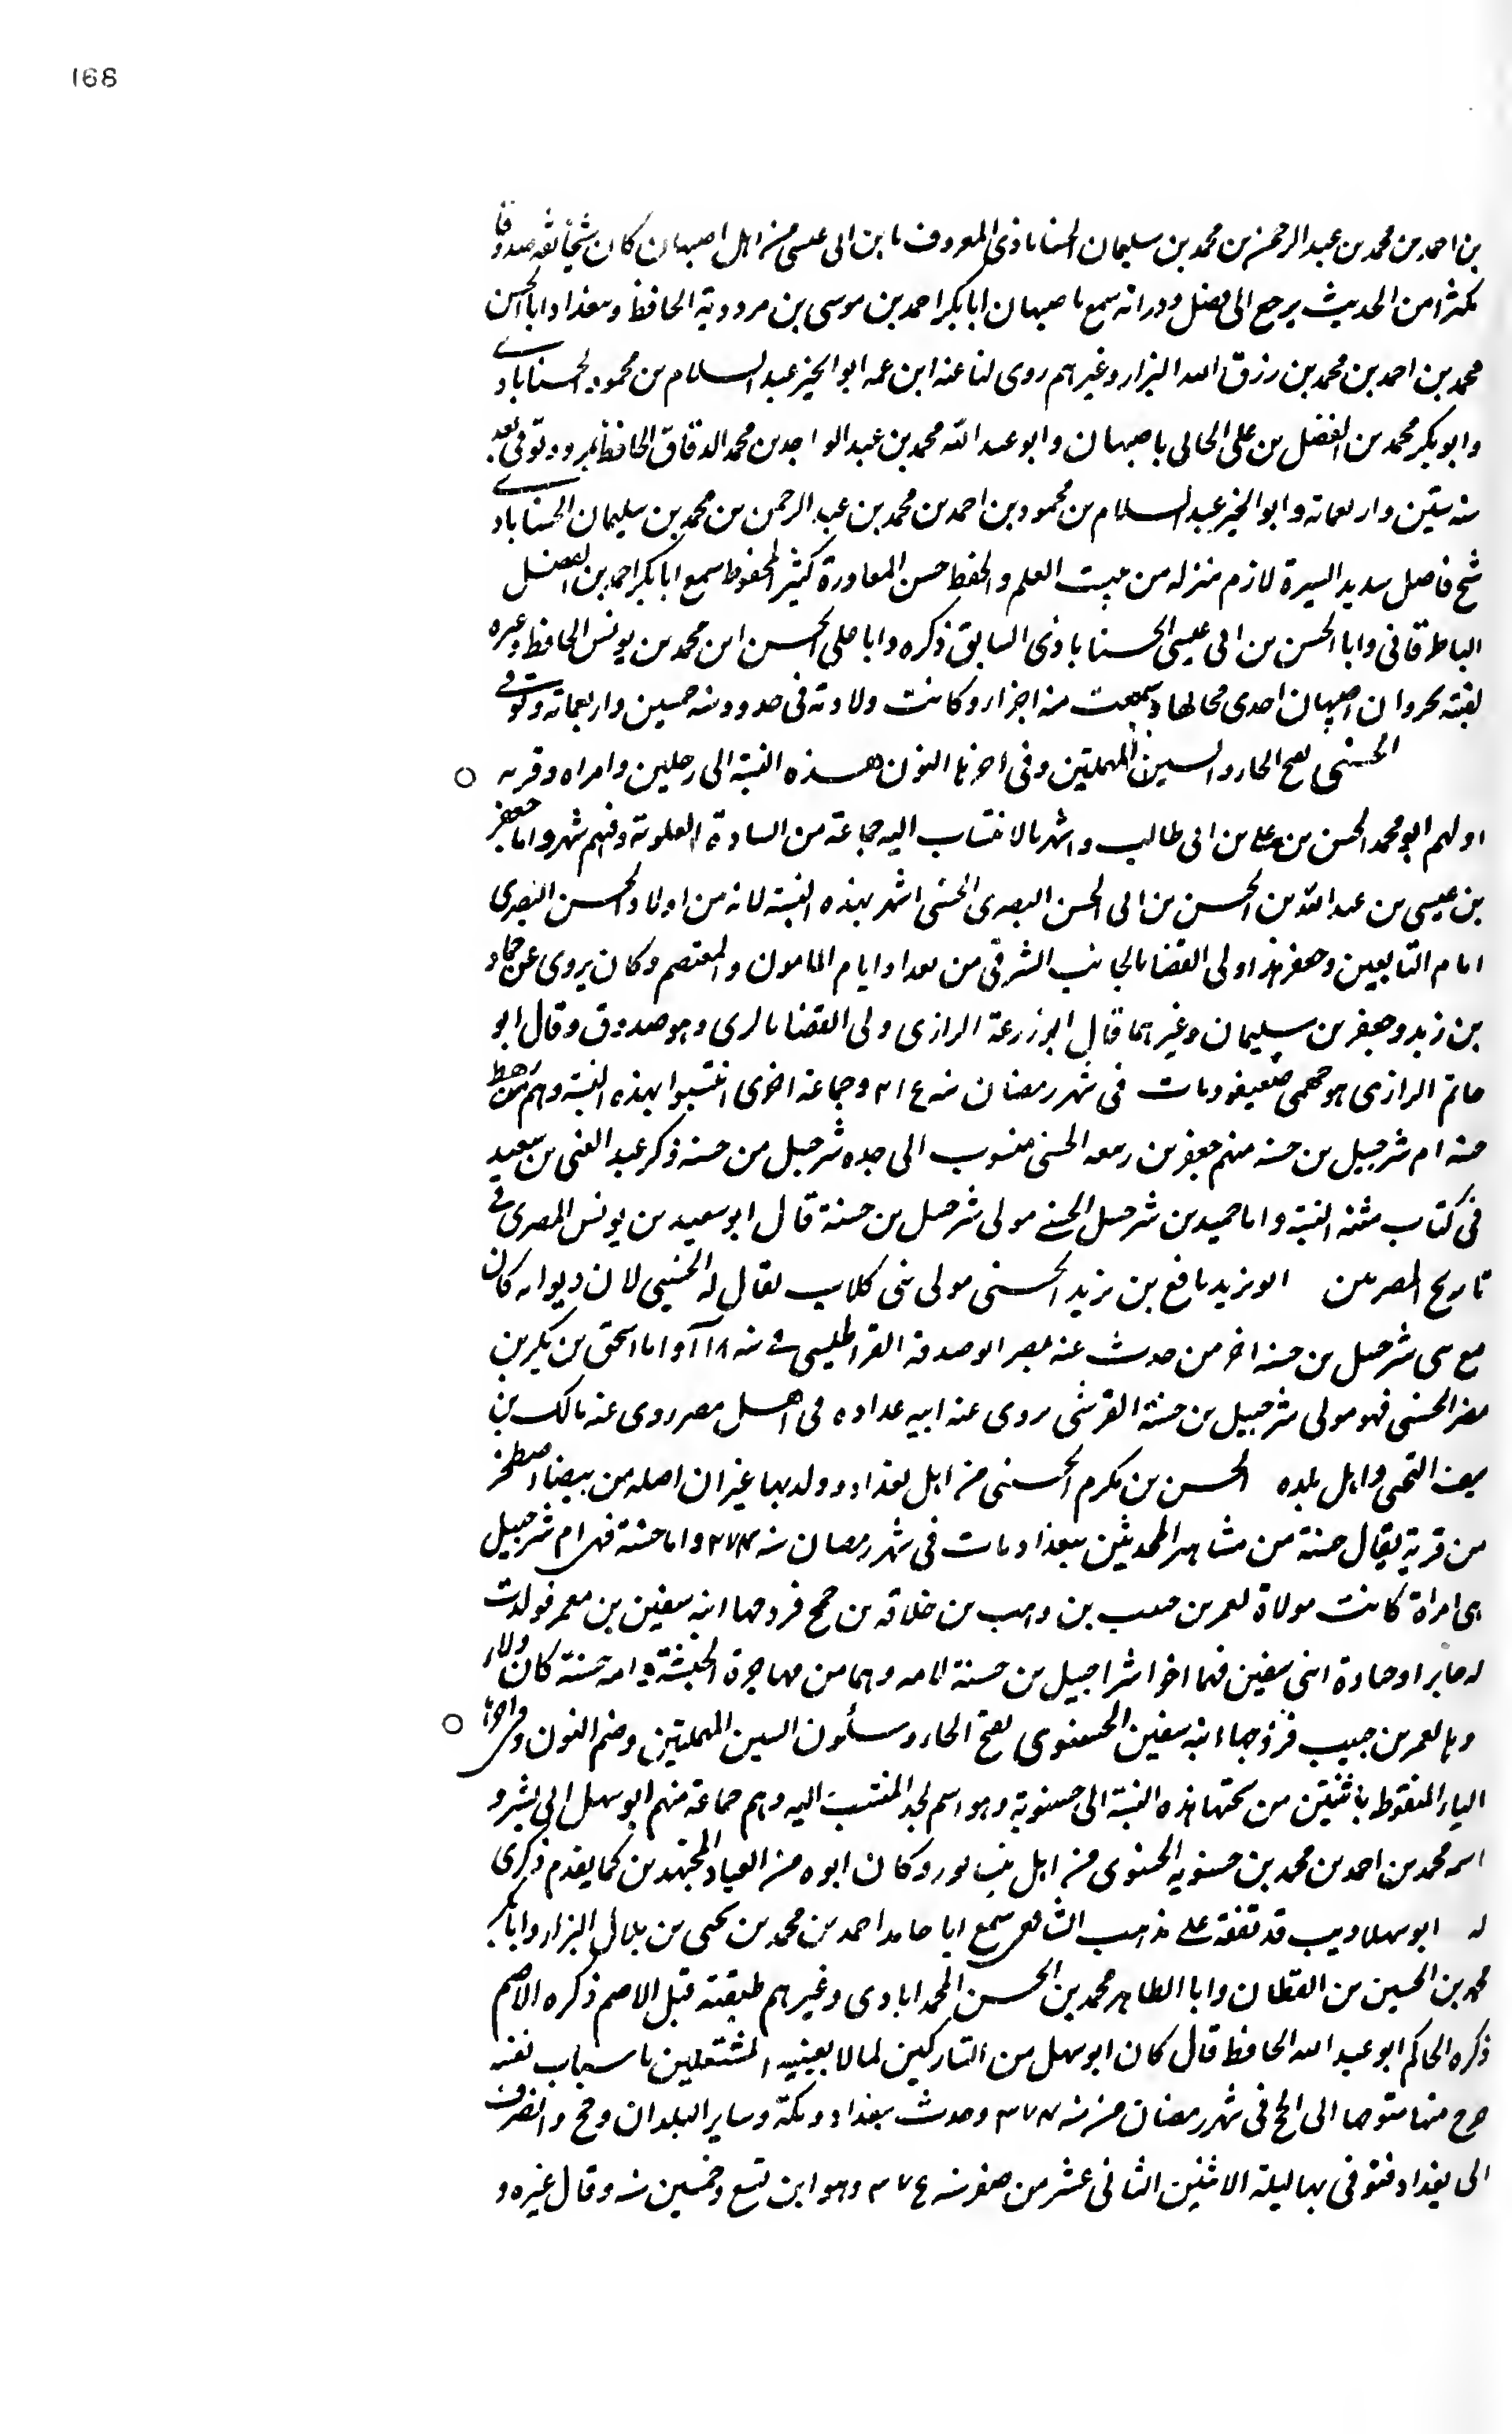 168
بن احمد بن محمد بن عبد الرحمن بن محمد بن سليمان الحسناباذى المعروف بابن ابى عيسى من اهل اصبهان كان شيخا ثقة صدوقا
مكثرا من الحديث يرجع الى فضل ودراية سمع باصبهان ابا بكر احمد بن موسى بن مردوية الحافظ وببغداد ابا الحسن
محمد بن احمد بن محمد بن رزق الله البزار وغيرهم روى لنا عنه ابن عمه ابو الخير عبد السلام بن محمود الحسناباذى
وابو بكر محمد بن الفضل بن على الخانى باصبهان وابو عبد الله محمد بن عبد الواحد بن محمد الدقاق الحافظ بمرو وتوفى بعد
سنه ستين واربعمائة وابو الخير عبد السلام بن محمود بن احمد بن محمد بن عبد الرحمن بن محمد بن سليمان الحسناباذى
شيخ فاضل سديد السيرة لازم منزله من بيت العلم والحفظ حسن المحاورة كثير المحفوظ سمع ابا بكر احمد بن الفضل
الباطرقانى وابا الحسن بن ابى عيسى الحسناباذى السابق ذكره وابا على الحسن ابن محمد بن يونس الحافظ وغيره
لقيته بحروا ان اصبهان احدى محالها وسمعت منه اجزاء وكانت ولادته فى حدود سنه خمسين واربعمائة وتوفى
الحسنى بفتح الحاء والسين المهملتين وفى اخرها النون هذه النسبة الى رجلين وامراه وقريه
اولهم ابو محمد الحسن بن على بن ابى طالب واشتهر بالانتساب اليه جماعة من السادة العلوية وفيهم شهرة واما جعفر
بن عيسى بن عبد الله بن الحسن بن ابى الحسن البصرى الحسنى اشتهر بهذه النسبة لانه من اولاد الحسن البصرى
امام التابعين وجعفر هذا ولى القضا بالجانب الشرقى من بغداد ايام المامون والمعتصم وكان يروى عن حماد
بن زيد وجعفر بن سليمان وغيرهما قال ابو زرعة الرازى ولى القضا بالرى وهو صدوق وقال ابو
حاتم الرازى هو جهمى ضعيف ومات فى شهر رمضان سنه ٢١٤ وجماعة اخرى انتسبوا بهذه النسبة وهم من رهط
حسنه ام شرحبيل بن حسنه منهم جعفر بن ربيعه الحسنى منسوب الى جده شرحبيل بن حسنه ذكر عبد الغنى بن سعيد
فى كتاب مشتبه النسبة واما حميد بن شرحبيل الحسنى مولى شرحبيل بن حسنة قال ابو سعيد بن يونس المصرى فى
تاريخ المصريين ابو يزيد نافع بن يزيد الحسنى مولى بنى كلاب يقال له الحسنى لان ديوانه كان
مع بنى شرحبيل بن حسنه اخر من حدث عنه بمصر ابو صدقة القراطيسى واما اسحق بن بكر بن
مضر الحسنى فهو مولى شرحبيل بن حسنة القرشى يروى عنه ابيه عداده فى اهل مصر روى عنه مالك بن
سيف التجيبى واهل بلده الحسن بن مكرم الحسنى من اهل بغداد وولد بها غير ان اصله من بيضاء اصطخر
من قرية يقال حسنة من مشاهير المحدثين ببغداد مات فى شهر رمضان سنه ٢٧٤ واما حسنة فهى ام شرحبيل
هى امراة كانت مولاة لمعمر بن حبيب بن وهب بن حذافه بن جمح فزوجها ابنه سفين بن معمر فولدت
له جابرا وجنادة ابنى سفين فهما اخوا شراحبيل بن حسنة لامه وهما من مهاجرة الحبشة وامه حسنة كان ولاء
ولها لعمر بن حبيب فزوجها ابنه سفين الحسنوى بفتح الحاء وسكون السين المهملتين وضم النون وفى اخرها
الياء المنقوطه باثنتين من تحتها هذه النسبة الى حسنوية وهو اسم لجد المنتسب اليه وهم جماعة منهم ابو سهل ابى بشر و
اسمه محمد بن احمد بن محمد بن حسنويه الحسنوى من اهل نيسابور وكان ابوه من العباد المجتهدين كما يقدم ذكرى
له ابو سهل اديب قد تفقه على مذهب الشافعى سمع ابا حامد احمد بن محمد بن يحيى بن بلال البزار وابا بكر
محمد بن الحسين بن القطان وابا الطاهر محمد بن الحسن المحمدابادى وغيرهم طبقته قبل الاصم ذكره الاصم
ذكره الحاكم ابو عبد الله الحافظ قال كان ابو سهل من التاركين لما لا يعنيه المشتغلين باسباب نفسه
خرج منها متوجها الى الحج فى شهر رمضان من سنه ٣٧٣ وحدث ببغداد ومكة وساير البلدان وحج وانصرف
الى بغداد فتوفى بها ليلة الاثنين الثانى عشر من صفر سنه ٣٧٤ وهو ابن تسع وخمسين سنه وقال غيره و